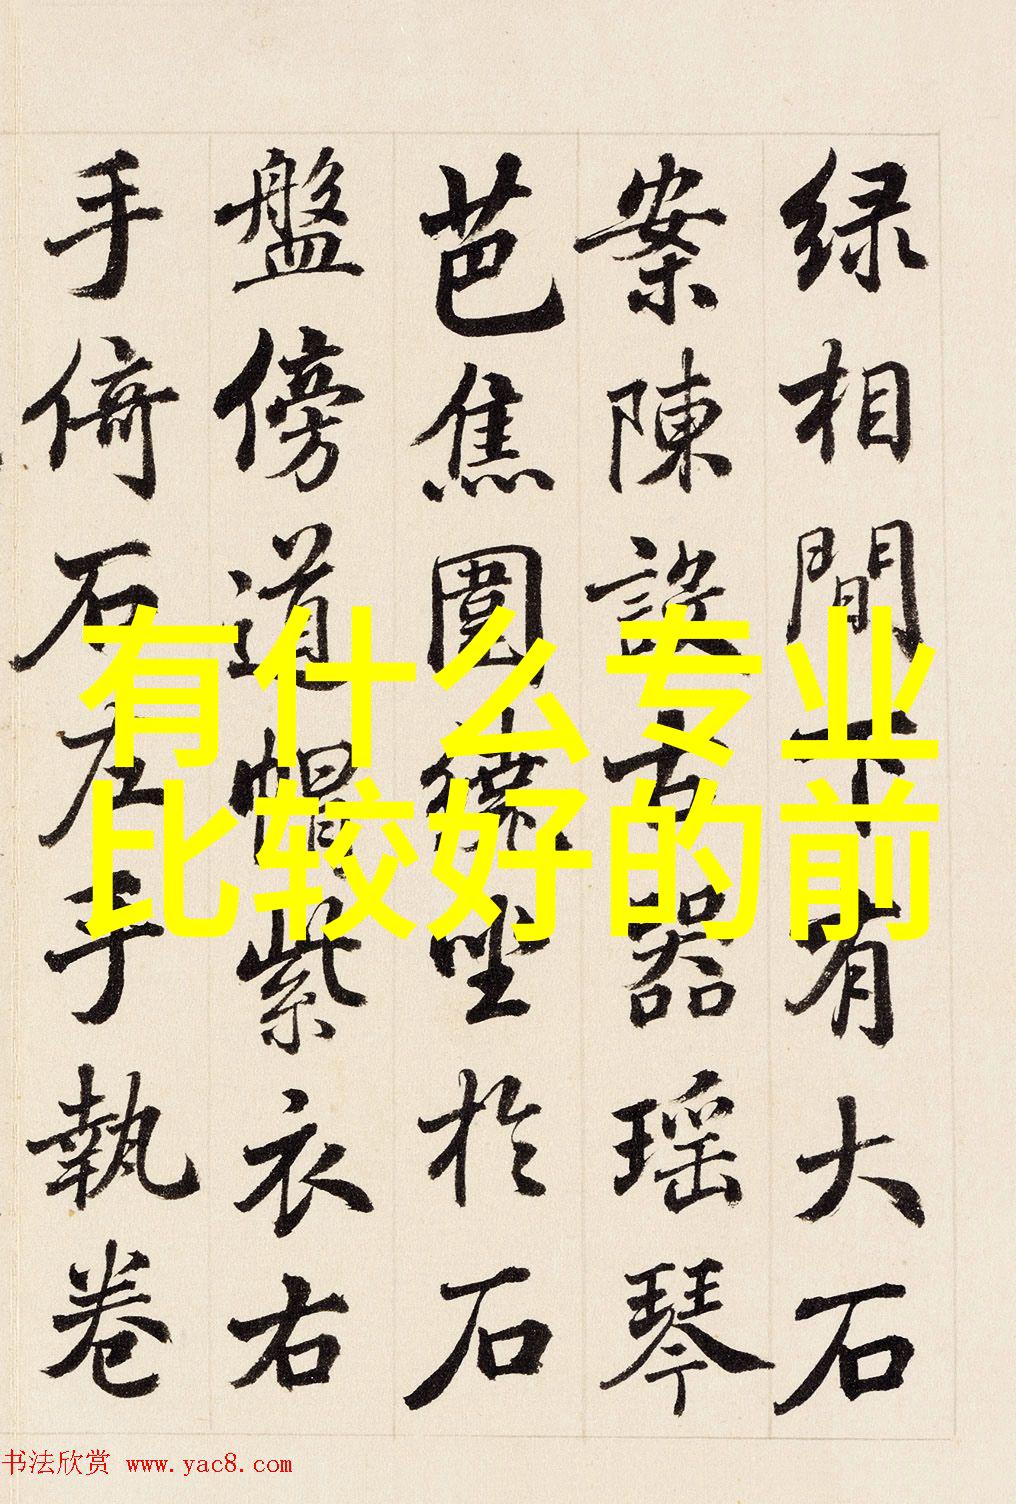 绿相間下有大石
案陳設古器瑶琴
芭焦圍繞坐於石
盤傍道帽紫衣右
手倚石左手執卷
有什么专业
比较好的前
书法欣赏 www.yac8.com